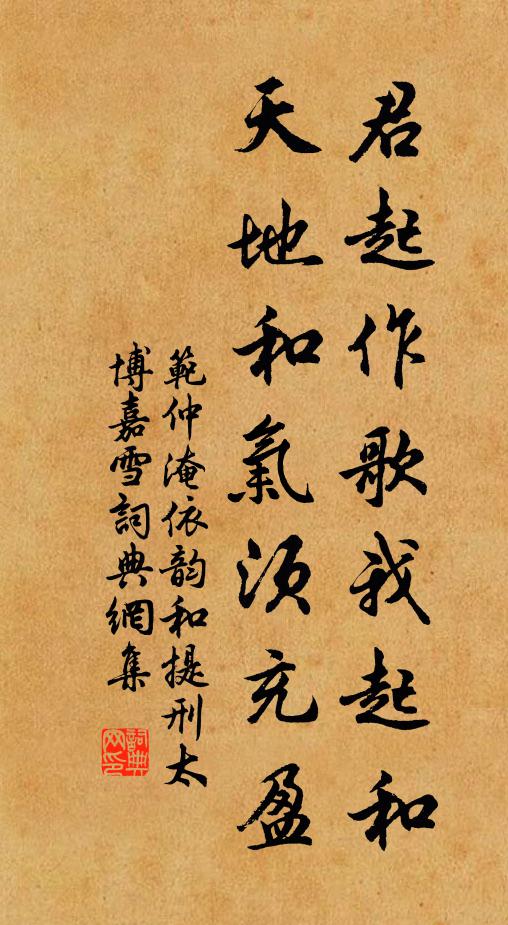 君起作歌我起和
天地和氣須充盈
範仲淹依韵和提刑太
博嘉雪詞典網集
詞典
网印